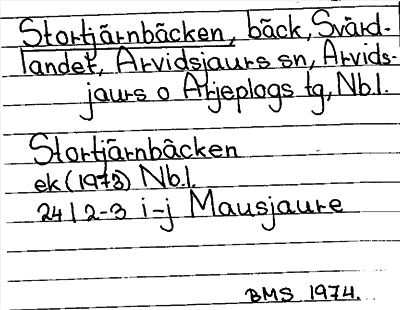 Stortjärnbäcken, bäck, Svärd-
landet, Arvidsjaurs sn, Arvids-
jaurs o Arjeplogs tg, Nb.l.
Stortjärnbäcken
ek (1973) Nb.l.
24 I 2-3 i-j Mausjaure
BMS 1974.